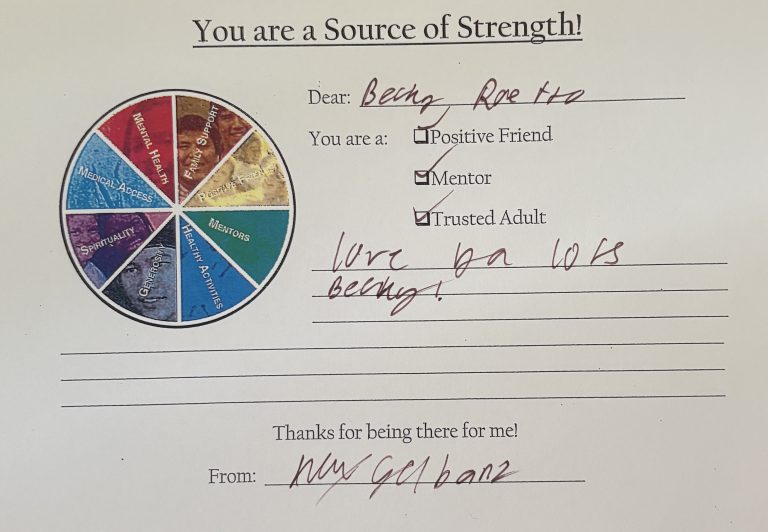 You are a Source of Strength!
Dear: Becky
You are a: Positive Friend
Mentor
Trusted Adult
MENTAL HEALTH
FAMILY SUPPORT
POSITIVE FRIENDS
MENTORS
HEALTHY ACTIVITIES
GENEROSITY
SPIRITUALITY
MEDICAL ACCESS
love ya lots
Becky!
Thanks for being there for me!
From: